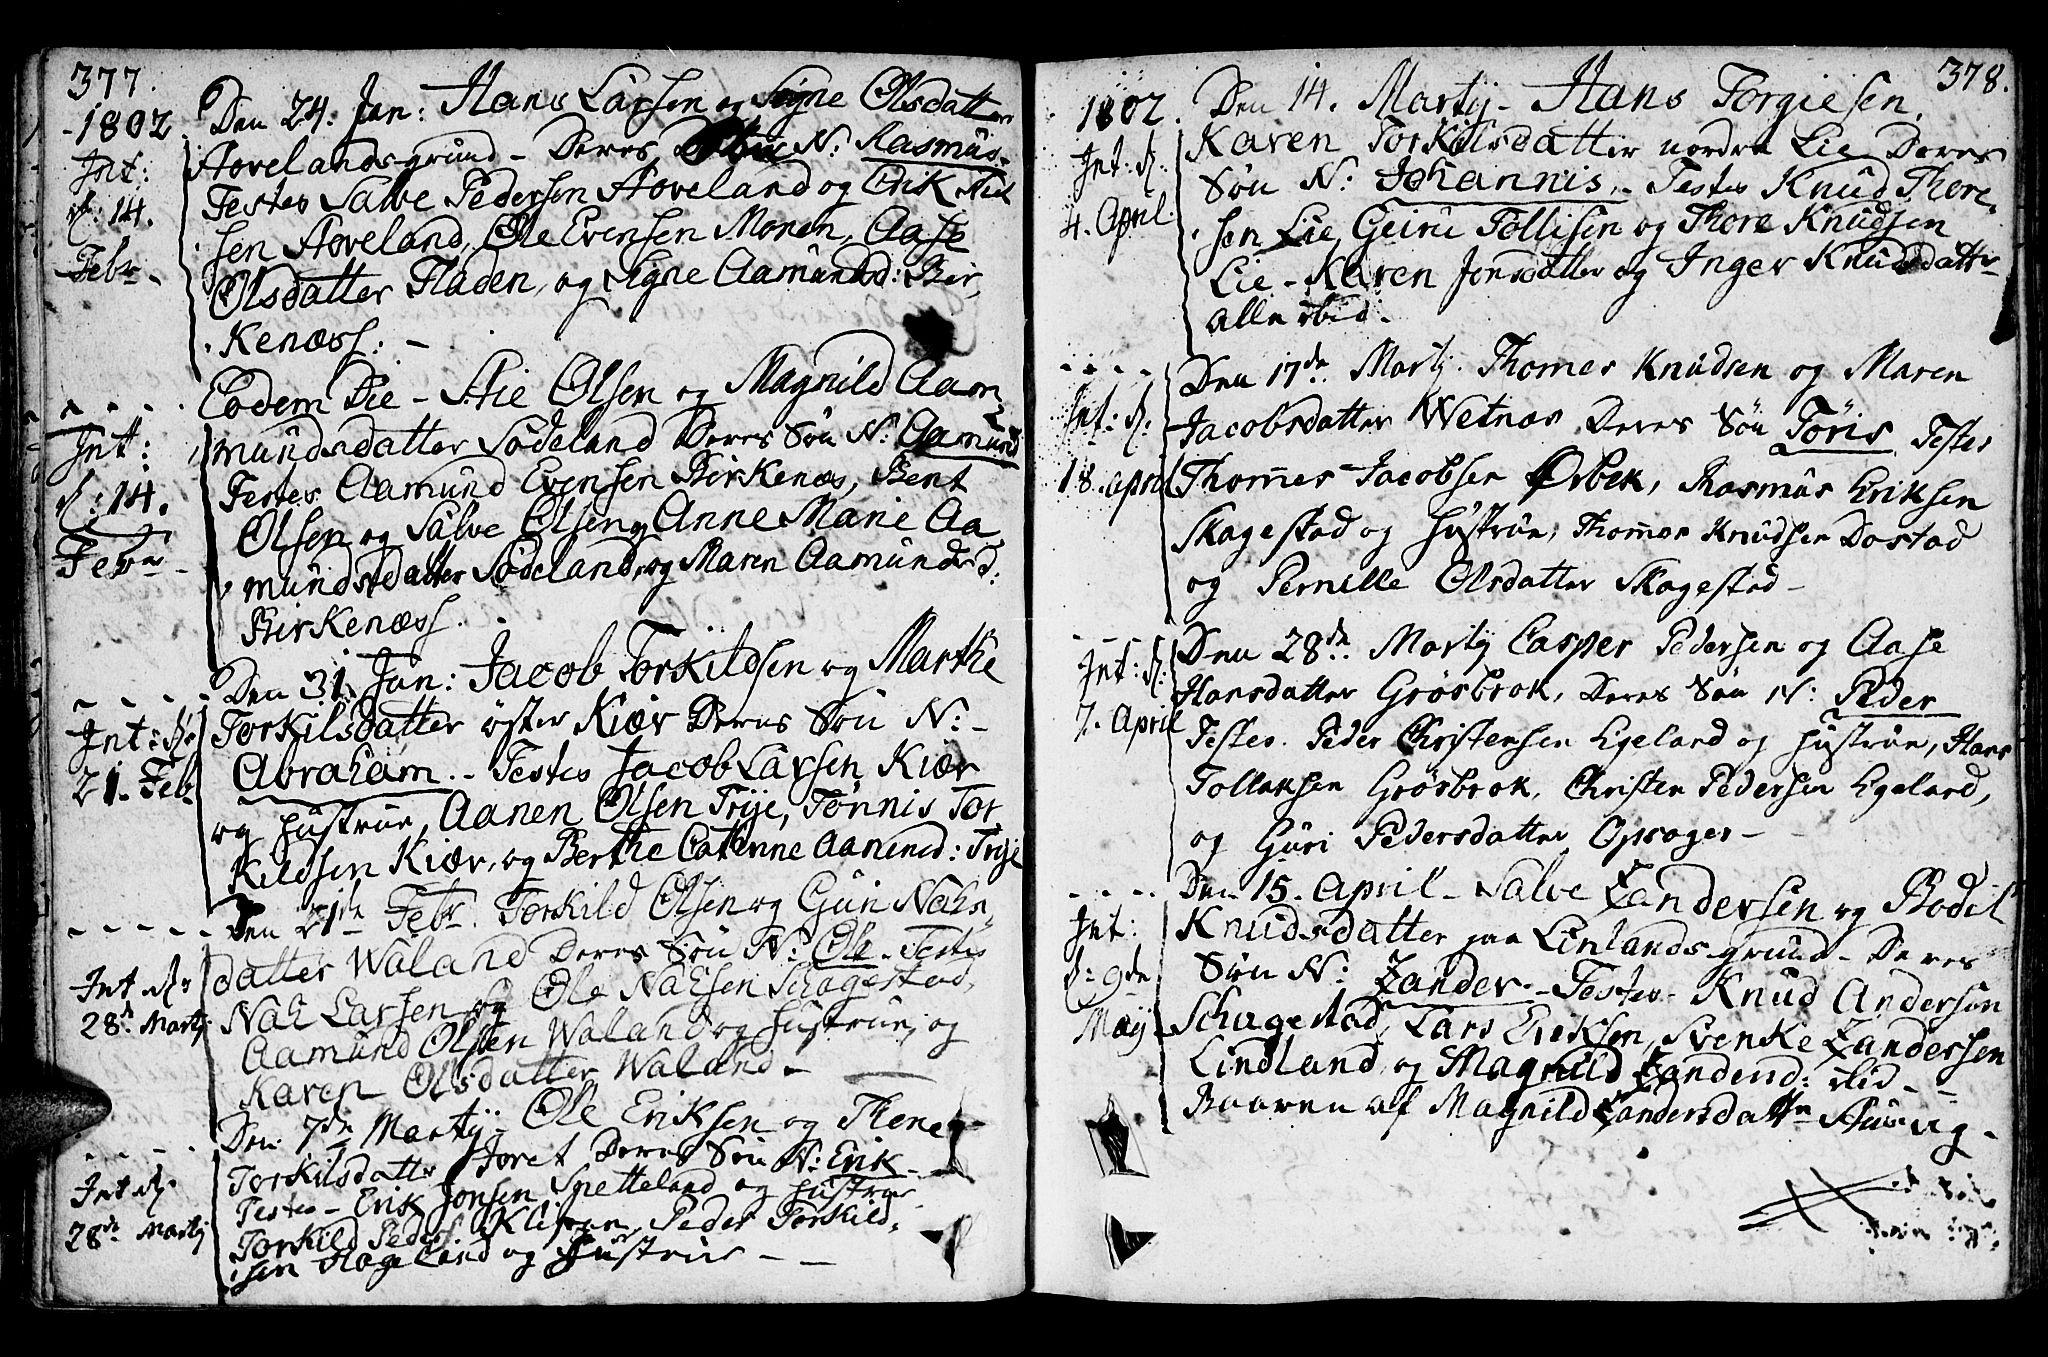 377.
-1802.
Int:
d: 14.
Febr.
Den 24. Jan: Hans Larsen og Signe Olsdatter
Aavelands-grund - Deres Søn N: Rasmus.
Testes Salve Pedersen Aaveland og Erik Niel
sen Aaveland, Ole Evensen Monen, Aase
Olsdatter Fladen, og Signe Aamundsd: Bir,
kenæss: -
Int:
d: 14.
Febr
Eodem Die - Stie Olsen og Magnild Aam,
mundsdatter Sødeland Deres Søn N: Aamund
Testes Aamund Evensen Birkenæs, Bent
Olsen og Salve Olsen og Anne Marie Aa,
mundsdatter Sødeland, og Maren Aamundsd:
Birkenæss.
Int: d:
21. Feb
Den 31. Jan: Jacob Torkildsen og Marthe
Torkilsdatter øster Kiær Deres Søn N: -
Abraham. - Testes Jacob Larsen Kiær
og Hustrue, Aanen Olsen Trije, Tønnis Tor
kildsen Kiær, og Berthe Cathrine Aanensd: Trije
Int d:
28d Martij
Den 21de Febr. Torkild Olsen og Guri Nahs,
datter Waland Deres Søn N: Ole - Testes
Nah Larsen og Ole Nahsen Schagestad,
Aamund Olsen Waland og Hustrue, og
Karen Olsdatter Waland. -
Int d:
28de Martij
Den 7de Martij - Ole Eriksen og Thene
Torkilsdatter Joret Deres Søn N: Erik -
Testes - Erik Jonsen Spetteland og Hustrue
Torkild Peders Peder Torkild,
sen Hageland og Hustrue -
378.
1802.
Int: d:
4. April.
Den 14. Martij - Hans Torgiesen
Karen Torkilsdatter nordre Lie Deres
Søn N: Johannis, - Testes Knud Thore,
sen Lie, Geiru Tollisen og Thore Knudsen
Lie - Karen Jonsdatter og Inger Knudsdatter
alle ibid.
Int: d:
18. April
Den 17de Martij. Thomes Knudsen og Maren
Jacobsdatter Wetnes Deres Søn Tøris. Testes
Thommes Jacobsen Ørbek, Rasmus Eriksen
Skagestad og Hustrue, Thommes Knudsen Dostad
og Pernille Olsdatter Skagestad -
Int: d:
7. April
Den 28de Martij Casper Pedersen og Aase
Hansdatter Grøsbrok, Deres Søn N: Peder
Testes. Peder Christensen Egeland og Hustrue, Hans
Tollaksen Grøsbrok, Christen Pedersen Egeland,
og Guri Pedersdatter Opsager -
Int:
d: 9de
Maij
Den 15. April - Salve Zandersen og Bodil
Knudsdatter paa Linlands-grund - Deres
Søn N: Zander - Testes - Knud Andersen
Schagestad, Lars Eriksen, Svenke Zandersen
Lindland, og Magnild Zandersd: ibid -
Baaren af Magnild Zandersdatter